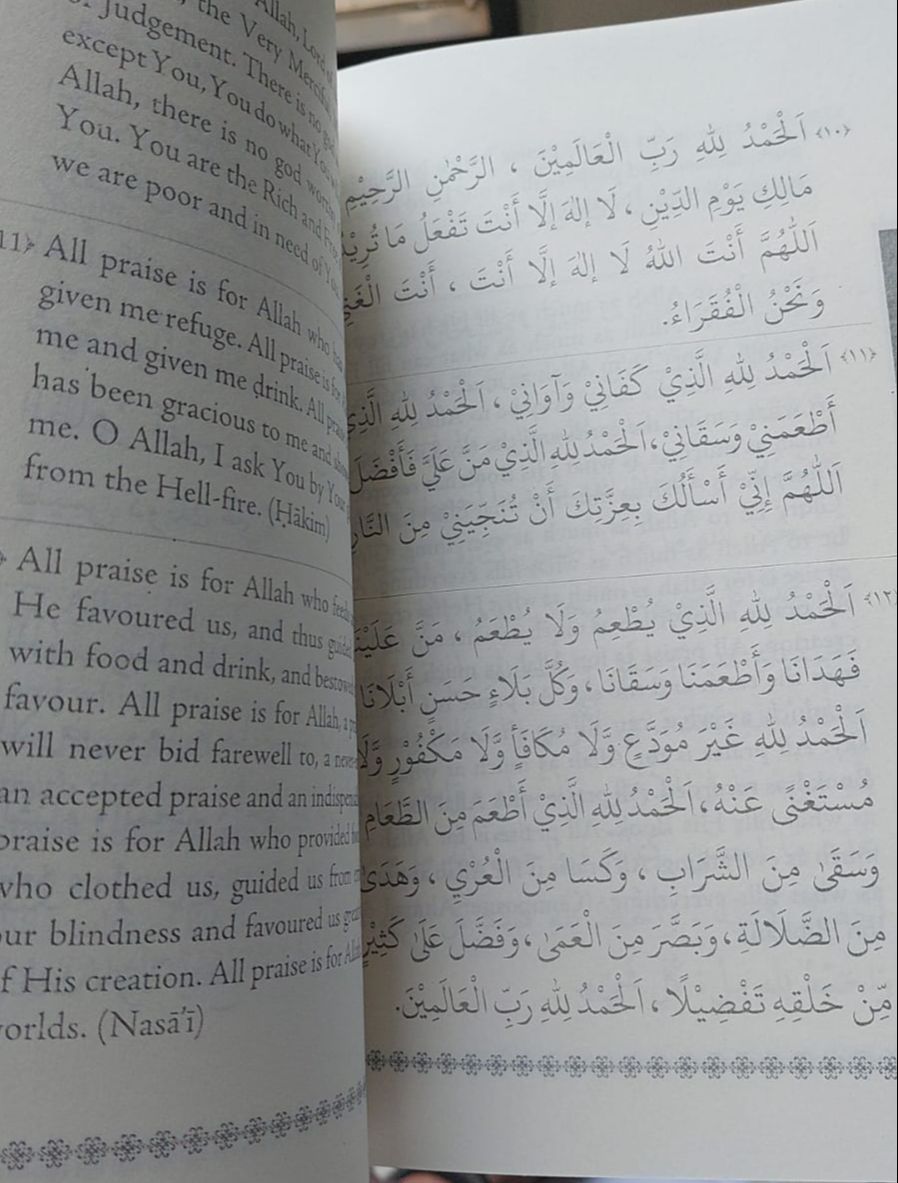 Allah, Lord of
the Very Merciful
Judgement. There is no god
except You, You do what You
Allah, there is no god
You. You are the Rich and
we are poor and in need of
11﴿ All praise is for Allah who has
given me refuge. All praise is for
me and given me drink. All praise
has been gracious to me and
me. O Allah, I ask You by Your
from the Hell-fire. (Ḥākim)
All praise is for Allah who feeds
He favoured us, and thus guided
with food and drink, and bestowed
favour. All praise is for Allah, a
will never bid farewell to, a
an accepted praise and an
praise is for Allah who provided
who clothed us, guided us from
our blindness and favoured us
of His creation. All praise is for
worlds. (Nasā'ī)
﴿١٠﴾ اَلْحَمْدُ لِلّٰهِ رَبِّ الْعَالَمِيْنَ ، الرَّحْمٰنِ الرَّحِيْمِ
مَالِكِ يَوْمِ الدِّيْنِ ، لَا إِلٰهَ إِلَّا أَنْتَ تَفْعَلُ مَا تُرِيْدُ
اَللّٰهُمَّ أَنْتَ اللّٰهُ لَا إِلٰهَ إِلَّا أَنْتَ ، أَنْتَ الْغَنِيُّ
وَنَحْنُ الْفُقَرَاءُ.
﴿١١﴾ اَلْحَمْدُ لِلّٰهِ الَّذِيْ كَفَانِيْ وَآوَانِيْ ، اَلْحَمْدُ لِلّٰهِ الَّذِيْ
أَطْعَمَنِيْ وَسَقَانِيْ، اَلْحَمْدُ لِلّٰهِ الَّذِيْ مَنَّ عَلَيَّ فَأَفْضَلَ
اَللّٰهُمَّ إِنِّيْ أَسْأَلُكَ بِعِزَّتِكَ أَنْ تُنَجِّيَنِيْ مِنَ النَّارِ
﴿١٢﴾ اَلْحَمْدُ لِلّٰهِ الَّذِيْ يُطْعِمُ وَلَا يُطْعَمُ ، مَنَّ عَلَيْنَا
فَهَدَانَا وَأَطْعَمَنَا وَسَقَانَا ، وَكُلَّ بَلَاءٍ حَسَنٍ أَبْلَانَا
اَلْحَمْدُ لِلّٰهِ غَيْرَ مُوَدَّعٍ وَّلَا مُكَافَأٍ وَّلَا مَكْفُوْرٍ وَّلَا
مُسْتَغْنًى عَنْهُ ، اَلْحَمْدُ لِلّٰهِ الَّذِيْ أَطْعَمَ مِنَ الطَّعَامِ
وَسَقَىٰ مِنَ الشَّرَابِ ، وَكَسَا مِنَ الْعُرْيِ ، وَهَدَىٰ
مِنَ الضَّلَالَةِ ، وَبَصَّرَ مِنَ الْعَمَى ، وَفَضَّلَ عَلَىٰ كَثِيْرٍ
مِّنْ خَلْقِهِ تَفْضِيْلًا ، اَلْحَمْدُ لِلّٰهِ رَبِّ الْعَالَمِيْنَ.